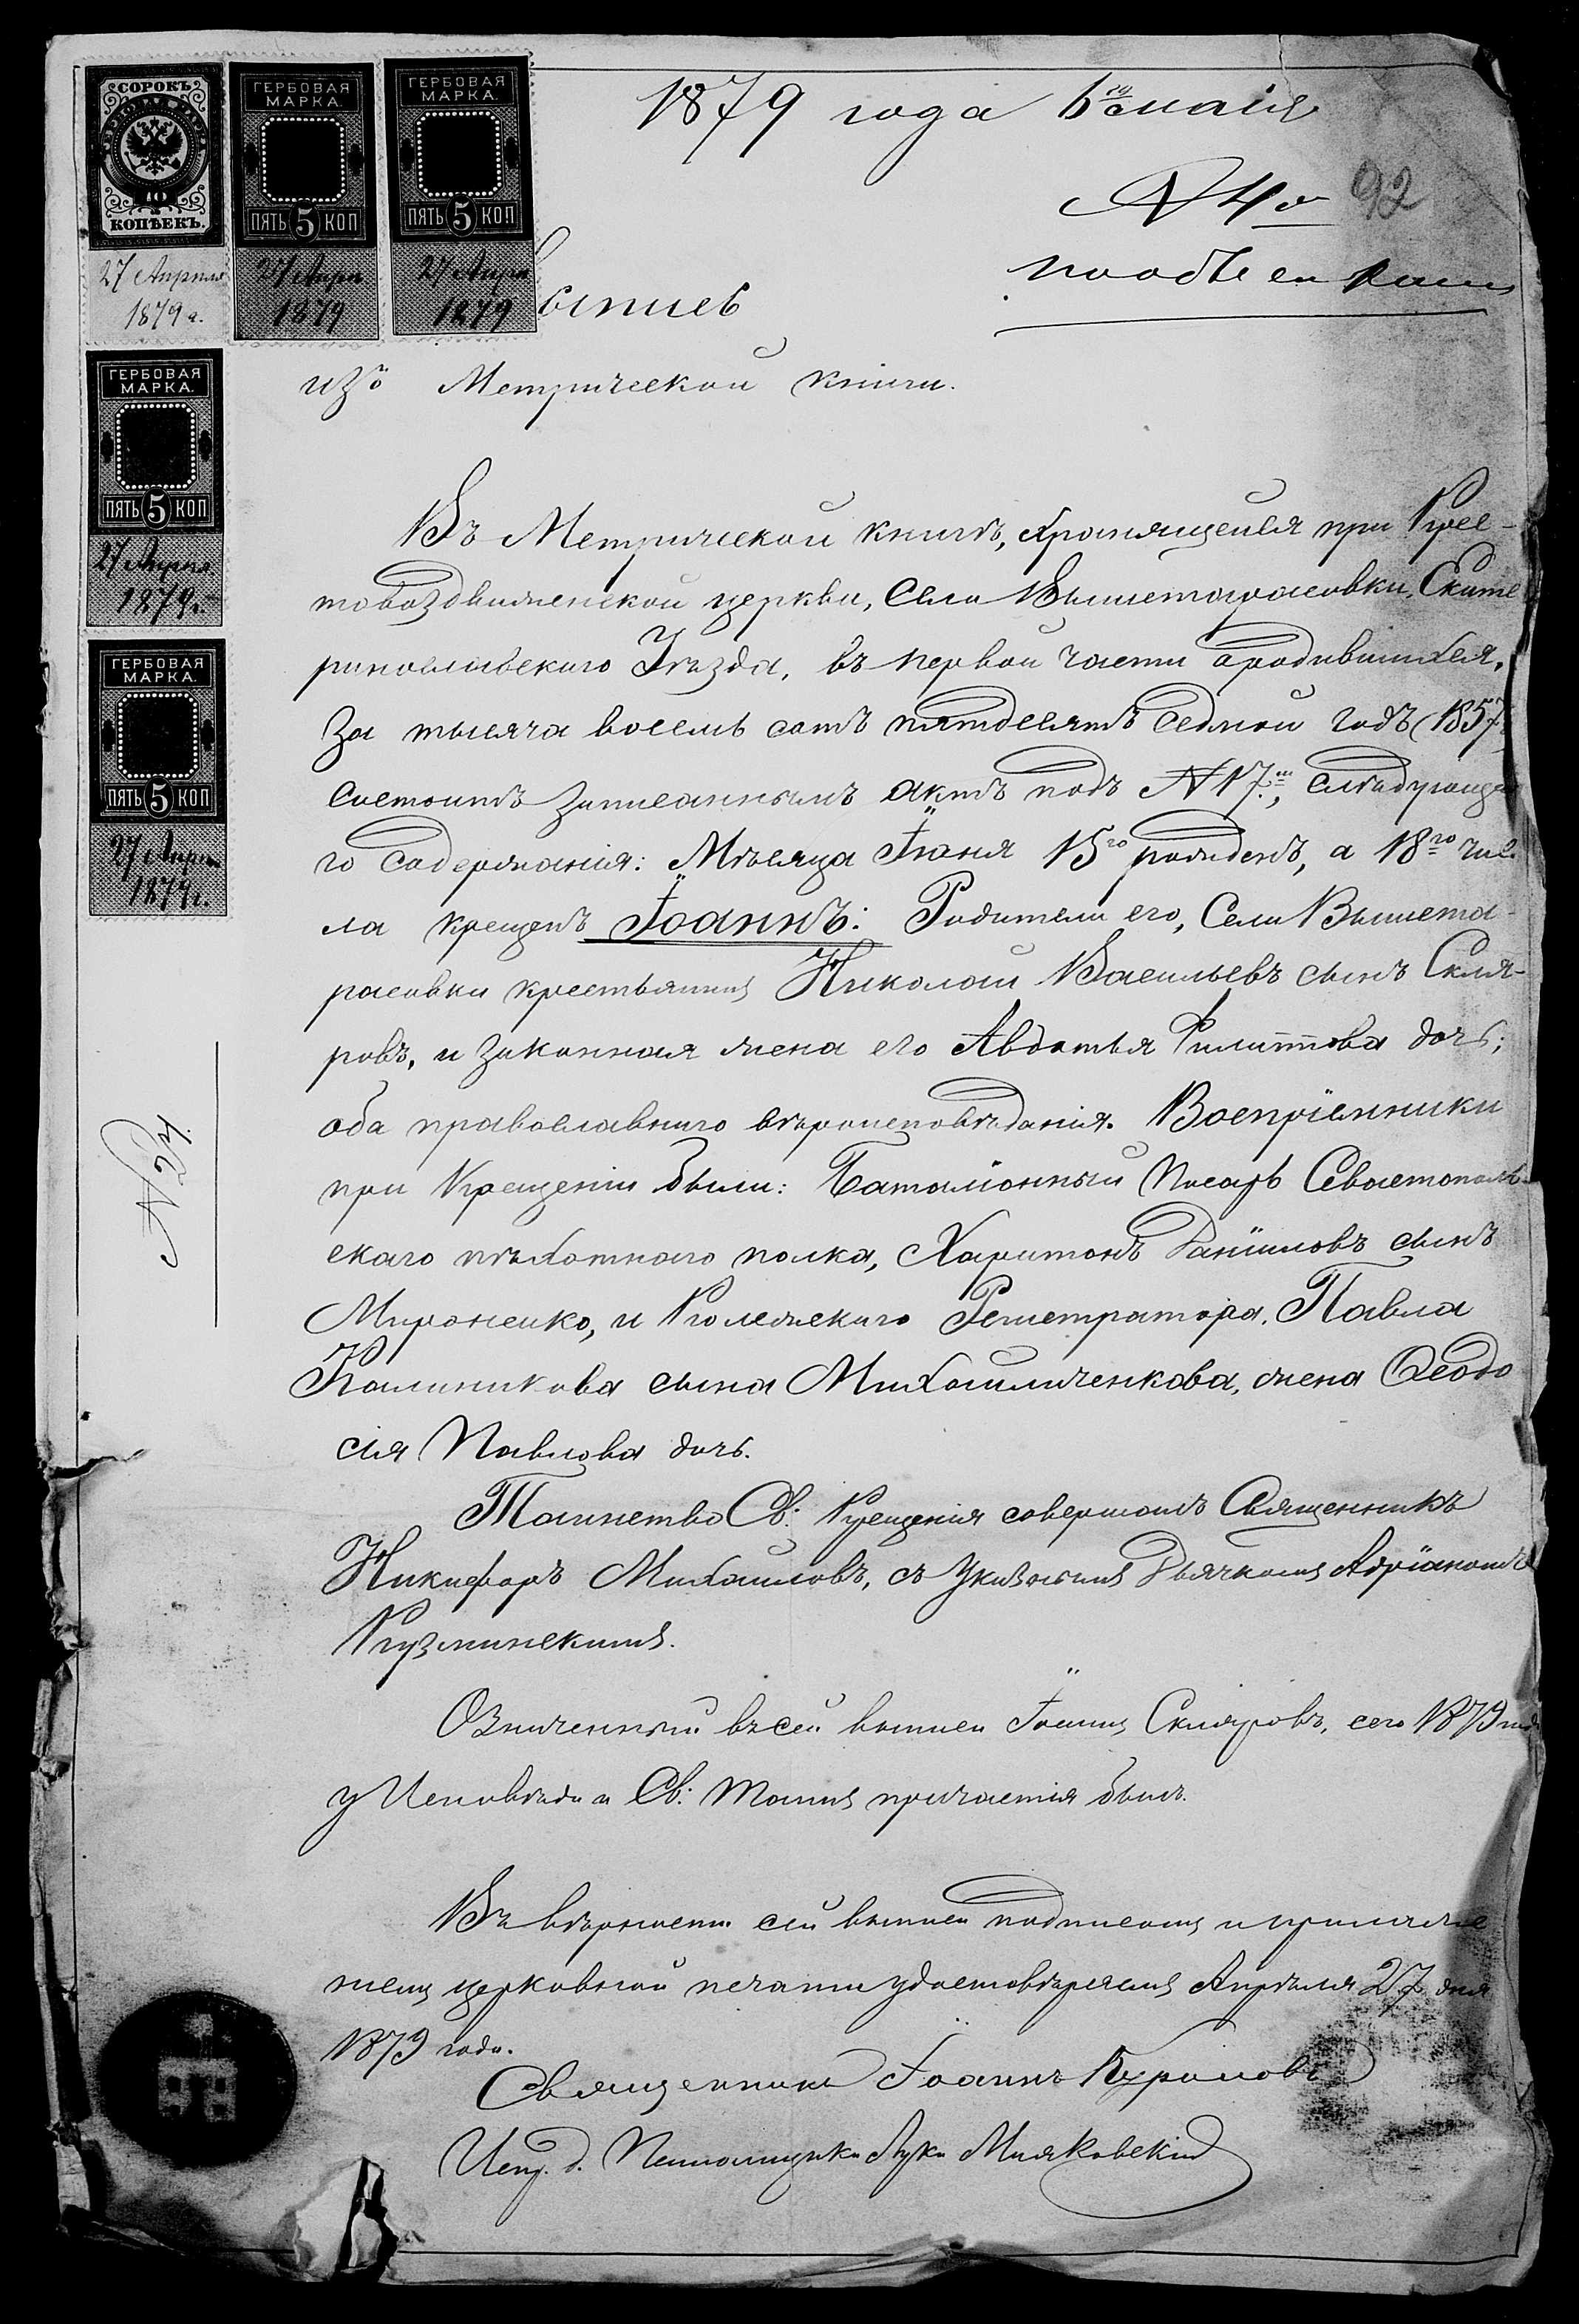 СОРОКЪ
40
КОПѢЕКЪ.
27 Апрѣля
1879 г.
ГЕРБОВАЯ
МАРКА.
ПЯТЬ 5 КОП
27 Апрѣ
1879
ГЕРБОВАЯ
МАРКА.
ПЯТЬ 5 КОП
27 Апрѣ
1879
ГЕРБОВАЯ
МАРКА.
ПЯТЬ 5 КОП
27 Апрѣля
1879 г.
ГЕРБОВАЯ
МАРКА.
ПЯТЬ 5 КОП
27 Апрѣля
1879 г.
1879 года 6го мая
№ 4й 92
по
ыписъ
изъ Метрической книги.
Въ Метрической книгѣ, хранящейся при Крес-
товоздвиженской церкви, Села Вышетарасовки, Екате
ринославскаго Уѣзда, въ первой части о родившихся,
за тысяча восемь сотъ пятдесятъ седмой годъ (1857
состоитъ записаннымъ актъ подъ № 17.мъ, слѣдующа
го содержанія: Мѣсяца Іюня 15го рожденъ, а 18го чис
ла крещенъ Іоаннъ: Родители его, Села Вышета-
расовки крестьянинъ Николай Васильевъ сынъ Скля-
ровъ, и законная жена его Авдотья Филиппова дочь;
оба православнаго вѣроисповѣданія. Воспріемники
при Крещеніи были: Баталіонный Писарь Севастополь-
скаго пѣхотнаго полка, Харитонъ Даніиловъ сынъ
Мироненко, и Колежскаго Регистратора, Павла
Калиникова сына Михайличенкова, жена Ѳеодо
сія Павлова дочь.
Таинство Св: Крещенія совершалъ Священникъ
Никифоръ Михаиловъ, съ указнымъ Дьячкомъ Адріаномъ
Кузминскимъ.
Означенный въ сей выписи Іоаннъ Скляровъ, сего 1879 года
у Исповѣди и Св: Таинъ причастія былъ.
Въ вѣрности сей выписи подписомъ и приложе
ніемъ церковной печати удостовѣряемъ Апрѣля 27 дня
1879 года.
Священникъ Іоаннъ Куриловъ
Испр. д. Псаломщика Лука Мияковскій
№ 24